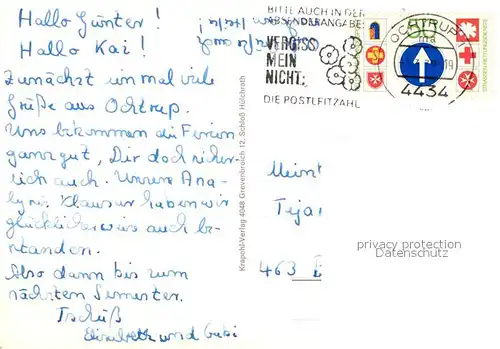 Hallo Günter!
Hallo Kai!
Zunächst mal viele
Grüße aus Ochtrup.
Uns bekommen die Ferien
ganz gut, Dir doch sicher-
lich auch. Unsere Ana-
lysis Klausur haben wir
glücklicherweise auch be-
standen.
Also dann bis zum
nächsten Semester.
Tschüß
Elisabeth und Gabi
Krapohl-Verlag 4048 Grevenbroich 12, Schloß Hülchrath
BITTE AUCH IN DER
ABSENDERANGABE:
VERGISS
MEIN
NICHT:
DIE POSTLEITZAHL
OCHTRUP 1
19
4434
50
STRASSEN-RETTUNGSDIENSTE
463
privacy protection
Datenschutz